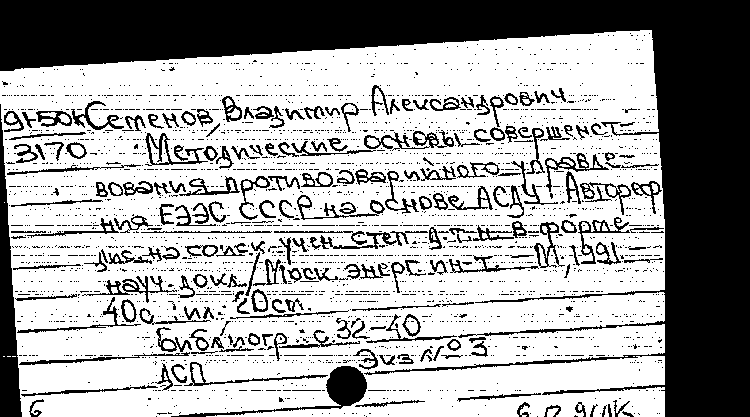 91-50к Семенов, Владимир Александрович
3170 Методические основы совершенст-
вования противоаварийного управле-
ния ЕЭЭС СССР на основе АСДУ: Автореф
дис. на соиск. учен. степ. д.т.н. в форме
науч. докл./Моск. энерг. ин-т. - М., 1991.
40с : ил. 20см.
Библиогр.: с.32-40
ДСП Экз №3
6